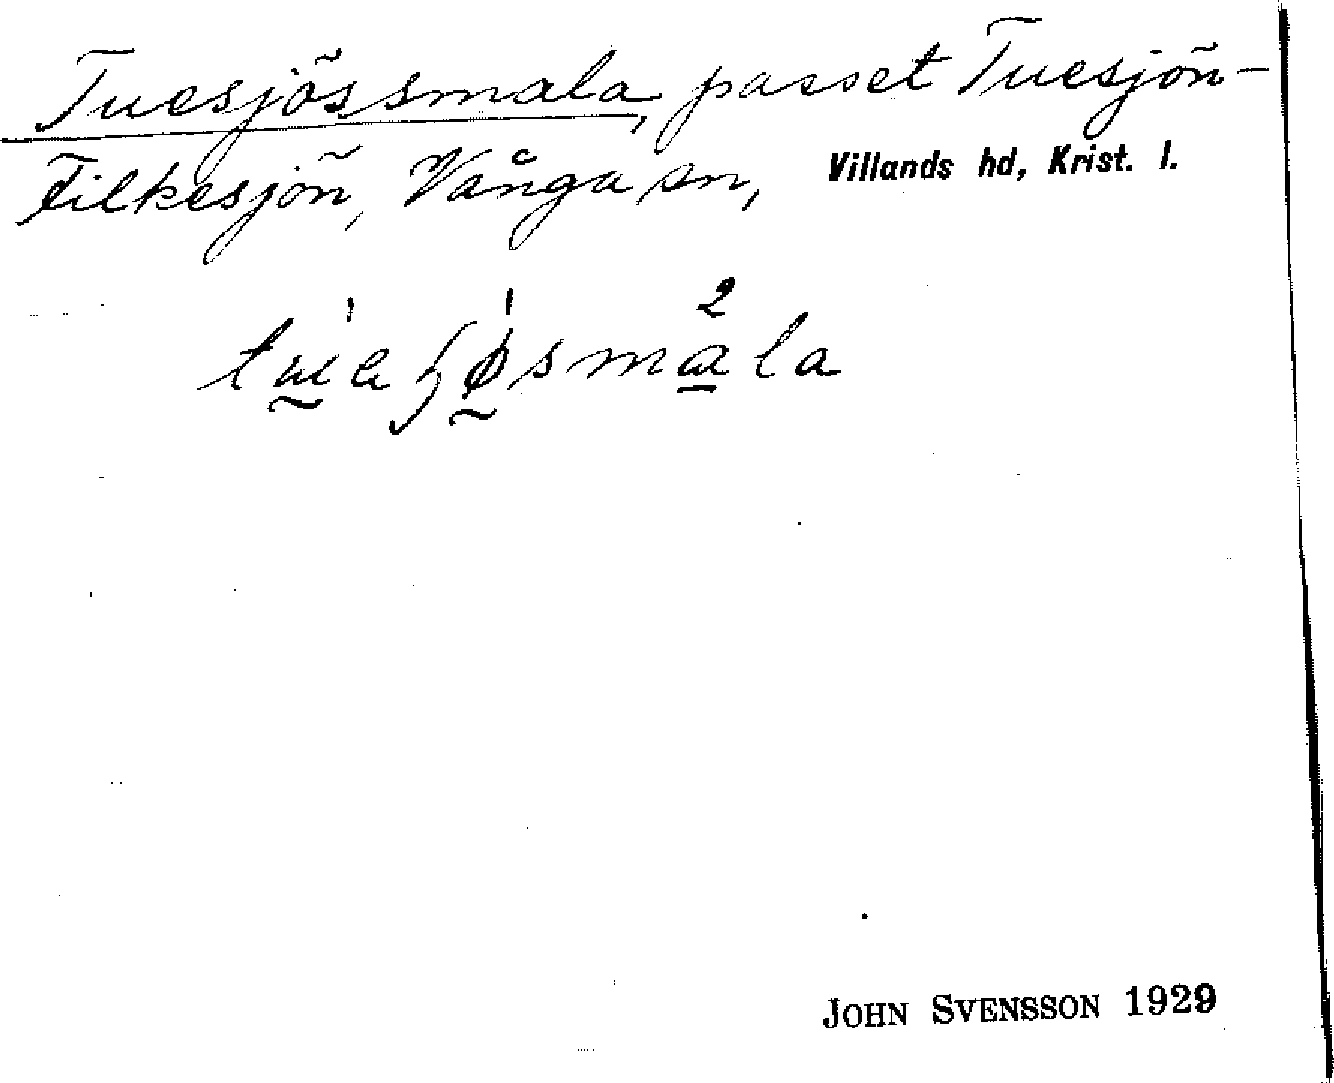 Tuesjössmala, passet Tuesjön-
Filkesjön, Vånga sn, Villands hd, Krist. l.
JOHN SVENSSON 1929